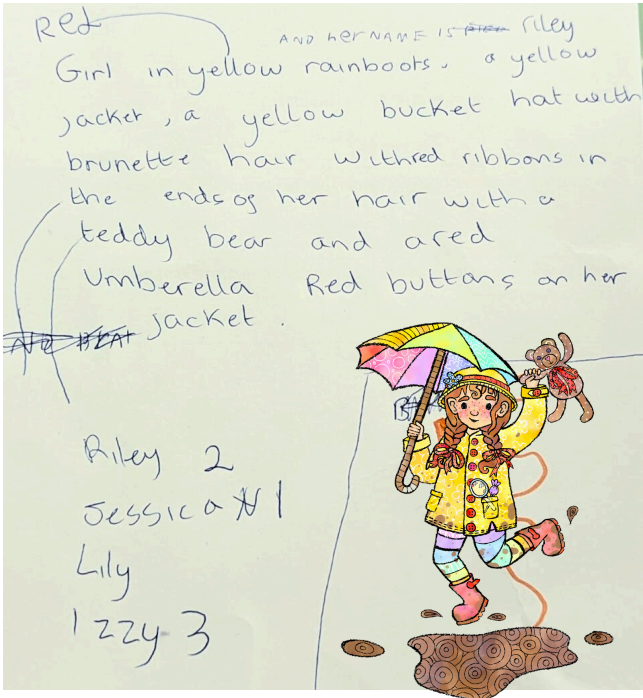 Red
AND her NAME IS riley
Girl in yellow rainboots, a yellow
jacket, a yellow bucket hat with
brunette hair with red ribbons in
the ends of her hair with a
teddy bear and a red
Umberella Red buttons on her
jacket.
Riley 2
Jessica 1
Lily
Izzy 3